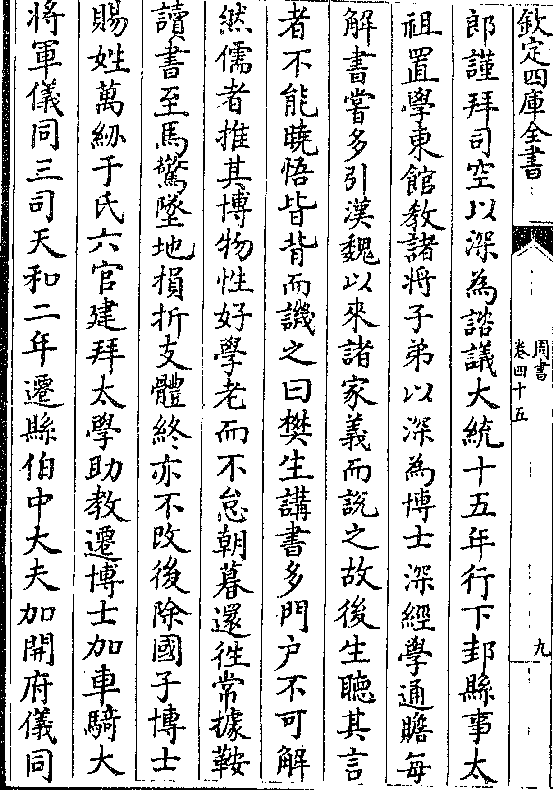 欽定四庫全書
周書
卷四十五
九
郎謹拜司空以深為諮議大統十五年行下邽縣事太
祖置學東館教諸將子弟以深為博士深經學通贍每
解書嘗多引漢魏以來諸家義而說之故後生聽其言
者不能曉悟皆背而譏之曰樊生講書多門户不可解
然儒者推其博物性好學老而不怠朝暮還徃常據鞍
讀書至馬驚墜地損折支體終亦不改後除國子博士
賜姓萬紉于氏六官建拜太學助教遷博士加車騎大
將軍儀同三司天和二年遷縣伯中大夫加開府儀同